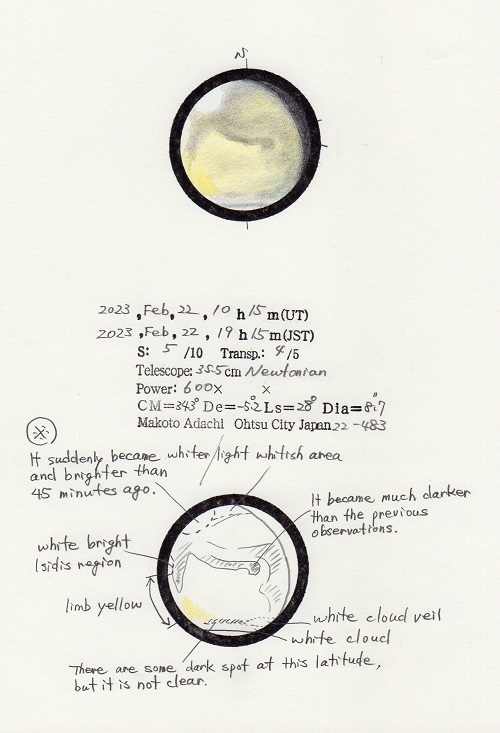 N
2023, Feb, 22, 10 h 15 m (UT)
2023, Feb, 22, 19 h 15 m (JST)
S: 5 /10 Transp.: 4/5
Telescope: 35.5cm Newtonian
Power: 600× ×
CM=343° De=-5.2° Ls=28° Dia=8".7
Makoto Adachi Ohtsu City Japan 22-483
※
It suddenly became whiter
and brighter than
45 minutes ago.
light whitish area
It became much darker
than the previous
observations.
white bright
Isidis region
limb yellow
white cloud veil
white cloud
There are some dark spot at this latitude,
but it is not clear.